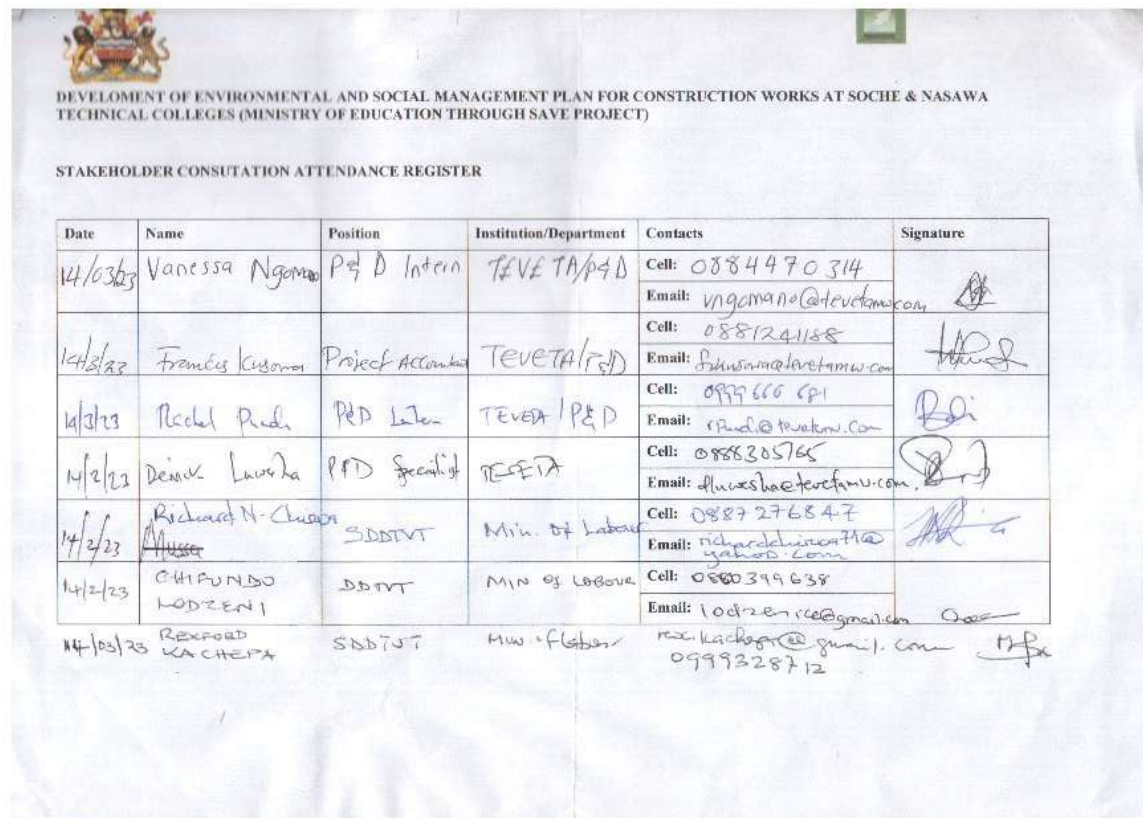 DEVELOMENT OF ENVIRONMENTAL AND SOCIAL MANAGEMENT PLAN FOR CONSTRUCTION WORKS AT SOCHE & NASAWA
TECHNICAL COLLEGES (MINISTRY OF EDUCATION THROUGH SAVE PROJECT)
STAKEHOLDER CONSUTATION ATTENDANCE REGISTER
Date Name Position Institution/Department Contacts Signature
14/03/23 Vanessa Ngomano P& D Intern TEVETA/P&D Cell: 0884470314
Email: vngomano@tevetamw.com
14/3/23 Francis Kusoma Project Accountant TEVETA/P&D Cell: 0881241188
Email: fkusoma@tevetamw.com
14/3/23 Rachel P&D TEVETA/P&D Cell: 0999 666 681
Email:
14/2/23 P&D Specialist Cell: 0888305765
Email:
14/2/23 Richard N- SDDTVT Min. Of Labour Cell: 0887276847
Email: yahoo.com
14/2/23 CHIFUNDO DDTVT MIN OF LABOUR Cell: 0880399638
LODZENI Email: lodzenice@gmail.com
14/03/23 REXFORD SDDTVT
KACHEPA 0999328712